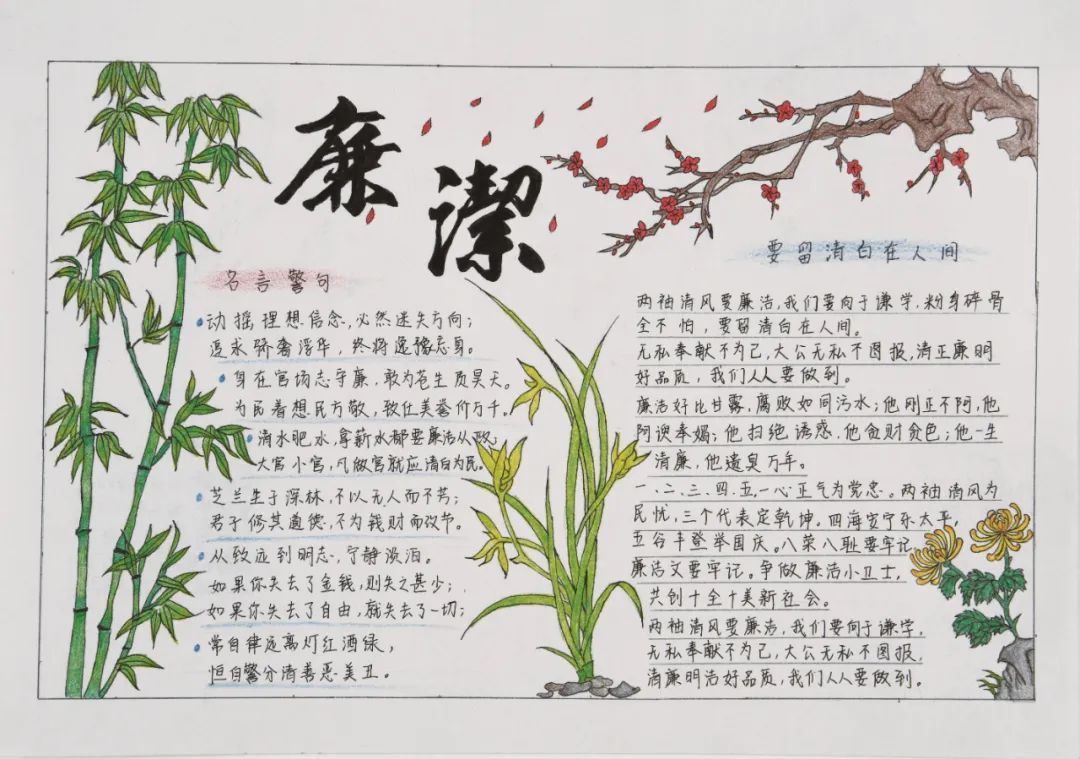 廉潔
名言警句
动摇理想信念,必然迷失方向;
追求骄奢浮华,终将逸豫忘身。
身在官场志守廉,敢为苍生质昊天。
为民着想民方敬,致仕美誉价万千。
清水肥水,拿薪水都要廉洁从政;
大官小官,凡做官就应清白为民。
芝兰生于深林,不以无人而不芳;
君子修其道德,不为钱财而改节。
从致远到明志,宁静淡泊。
如果你失去了金钱,则失之甚少;
如果你失去了自由,就失去了一切;
常自律远离灯红酒绿,
恒自警分清善恶美丑。
要留清白在人间
两袖清风要廉洁,我们要向于谦学,粉身碎骨
全不怕,要留清白在人间。
无私奉献不为己,大公无私不图报,清正廉明
好品质,我们人人要做到。
廉洁好比甘露,腐败如同污水;他刚正不阿,他
阿谀奉媚;他拒绝诱惑,他贪财贪色;他一生
清廉,他遗臭万年。
一、二、三、四、五,一心正气为党忠。两袖清风为
民忧,三个代表定乾坤。四海安宁乐太平,
五谷丰登举国庆。八荣八耻要牢记,
廉洁文要牢记。争做廉洁小卫士,
共创十全十美新社会。
两袖清风要廉洁,我们要向于谦学,
无私奉献不为己,大公无私不图报,
清廉明洁好品质,我们人人要做到。